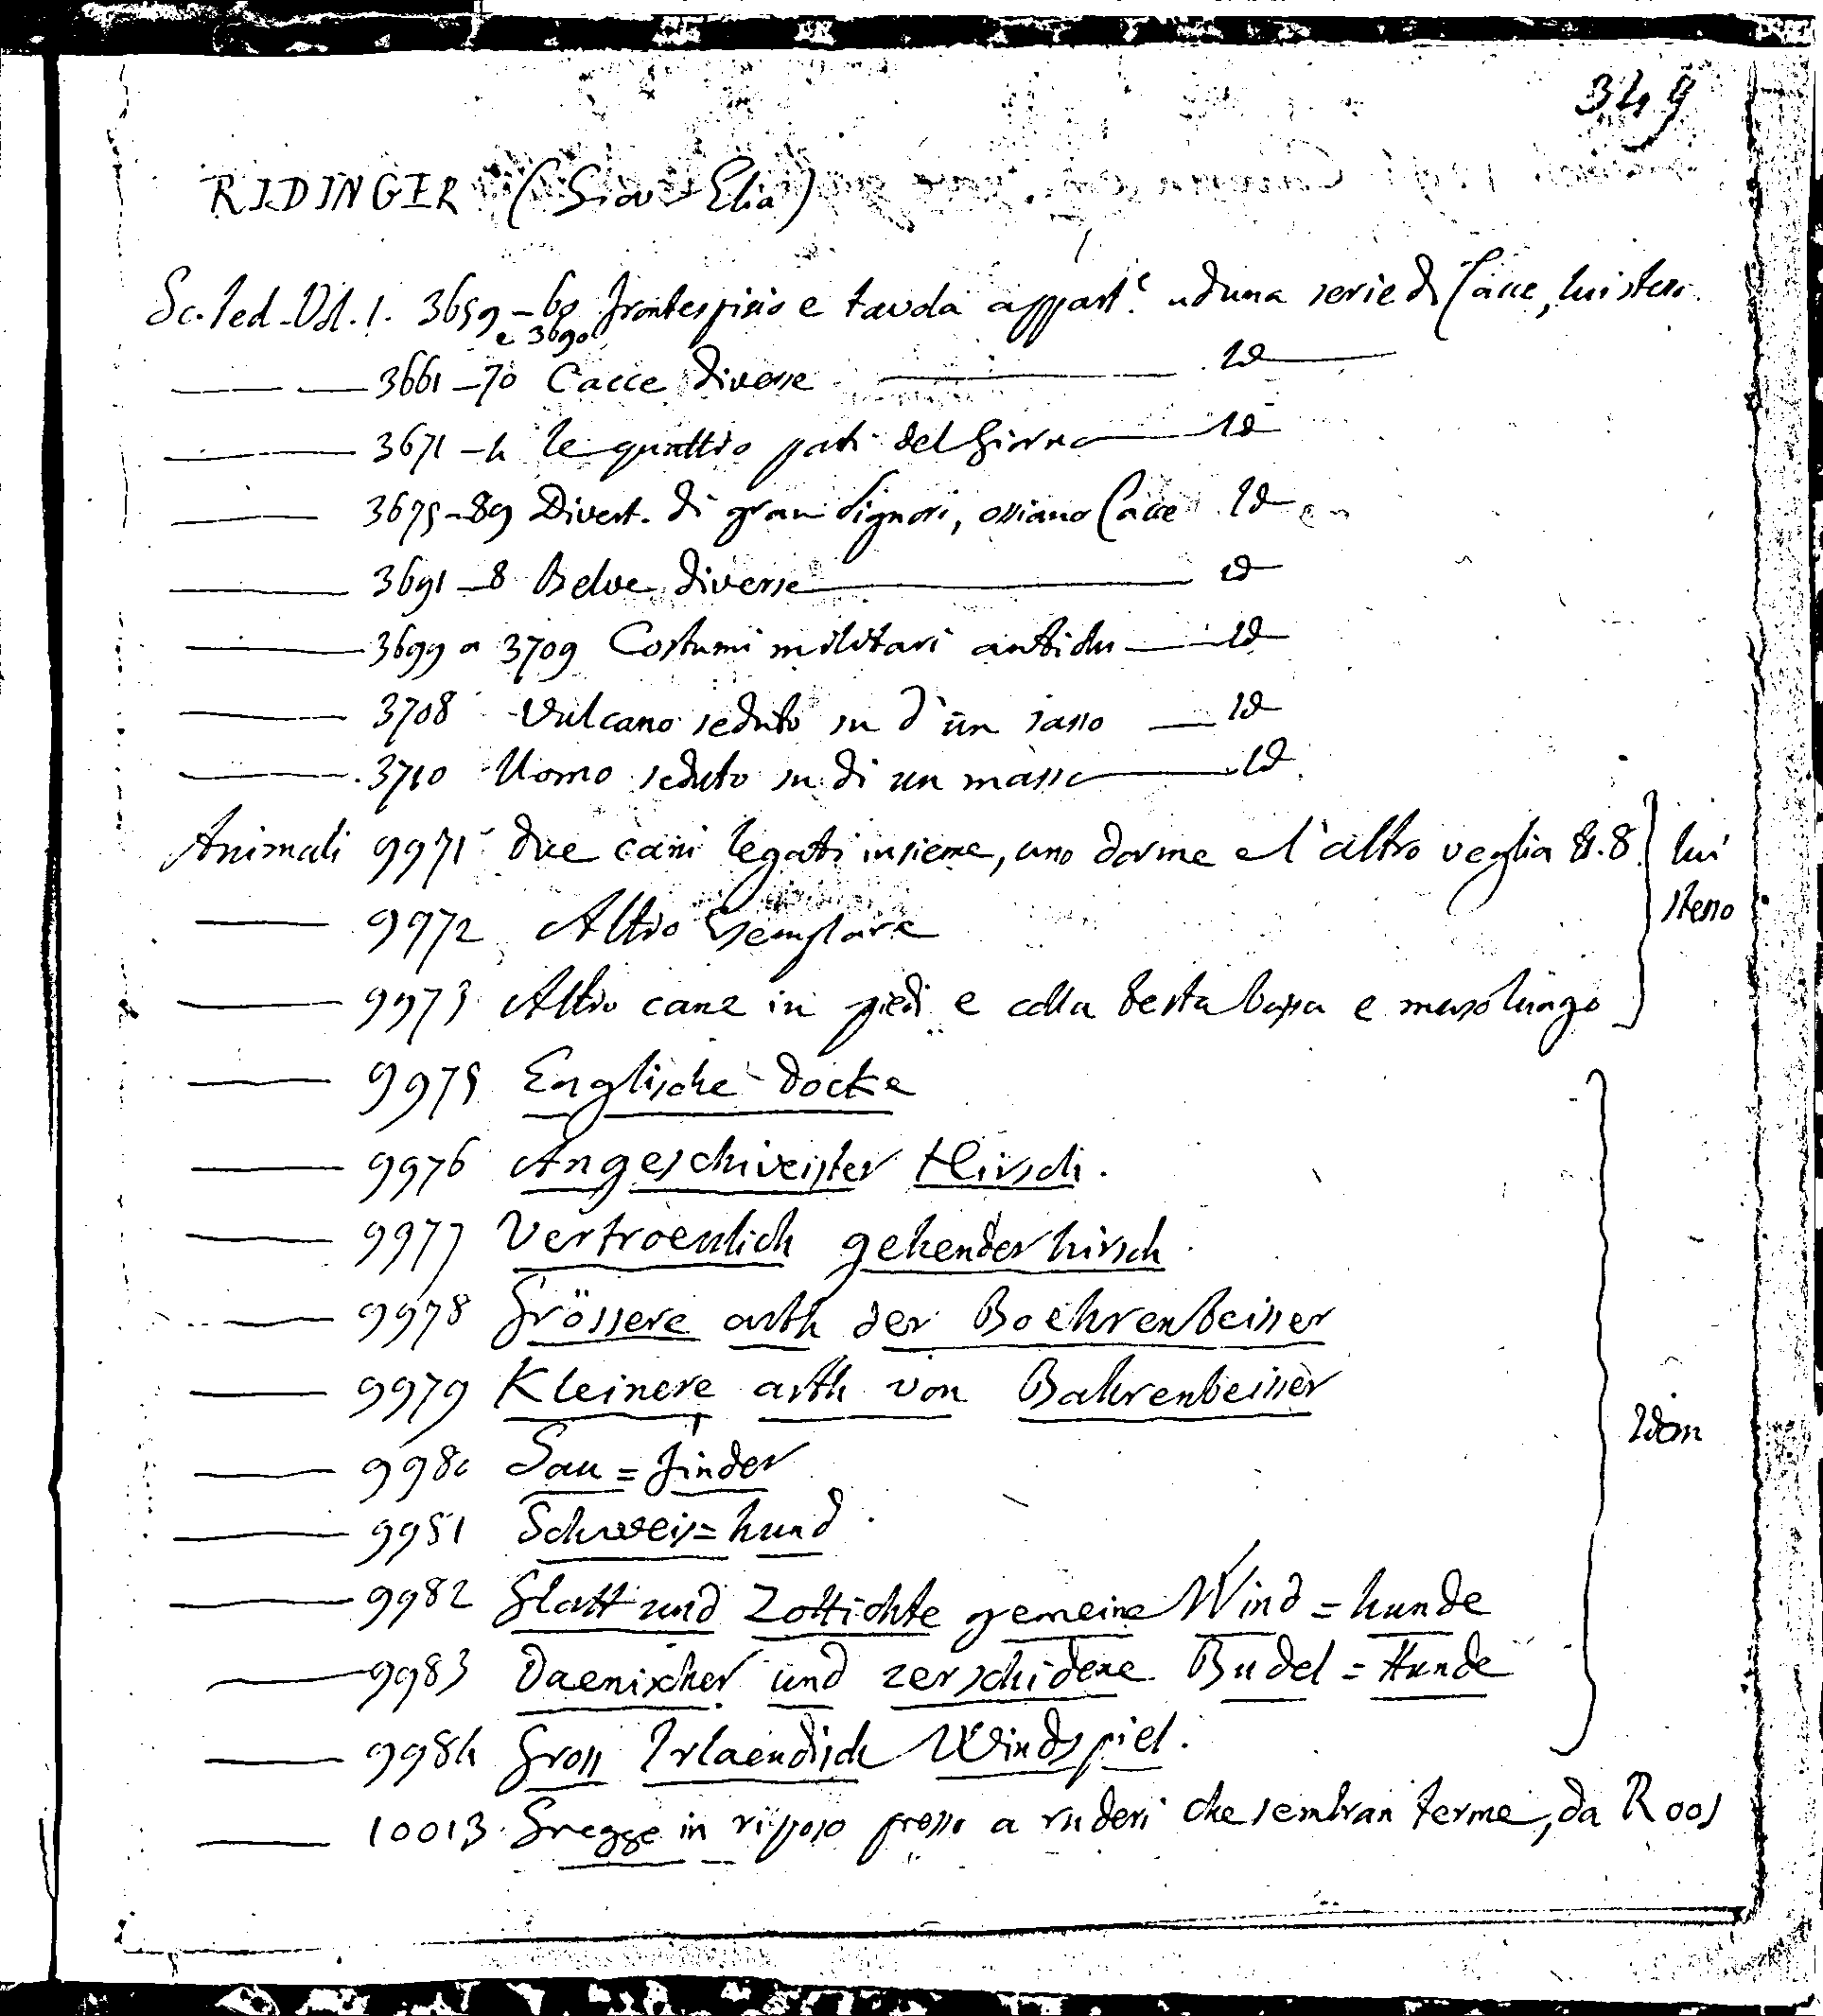 349
RIDINGER (Giov Elia)
Sc. Ted. Vol. 1. 3659-60 frontespizio e tavola appart.e ad una serie di Cacce, lui stesso
e 3690
3661-70 Cacce diverse Id
3671-4 le quattro parti del Giorno Id
3675-89 Divert. di gran Signori, ossiano Cacce Id
3691-8 Belve diverse Id
3699 a 3709 Costumi militari antichi Id
3708 Vulcano seduto su d'un sasso Id
3710 Uomo seduto su di un masso Id
Animali 9971 due cani legati insieme, uno dorme e l'altro veglia &.&. lui
stesso
9972 Altro Esemplare
9973 Altro cane in piedi e colla testa bassa e muso lungo
9975 Englische docke
9976 Angeschweister Hirsch.
9977 Vertroenlich gehender hirsch
9978 Grössere arth der Boehrenbeisser
9979 Kleinere arth von Bahrenbeisser
Idem
9980 Sau=finder
9981 Schweis=hund
9982 Glatt und Zottichte gemeine Wind=hunde
9983 Daenischer und zerschidene Budel=Hunde
9984 Gross Irlaendisch Windspiel.
10013 Gregge in risposo presso a ruderi che sembran terme, da Roos